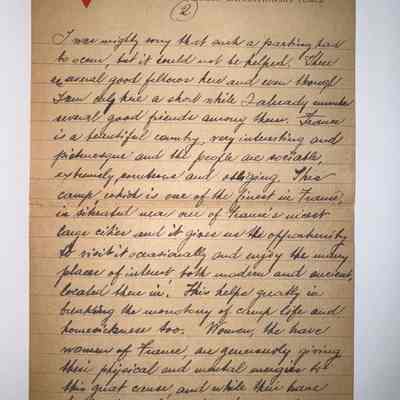 2
I was mighty sorry that such a parting had
to occur, but it could not be helped. There
several good fellows here and even though
I am only here a short while I already number
several good friends among them. France
is a beautiful country, very interesting and
picturesque and the people are sociable,
extremely courteous and obliging. This
camp, which is one of the finest in France,
is situated near one of France's nicest
large cities and it gives us the opportunity
to visit it occasionally and enjoy the many
places of interest both modern and ancient,
located there in. This helps greatly in
breaking the monotony of camp life and
homesickness too. Women, the brave
women of France, are generously giving
their physical and mental energies to
this great cause, and while their